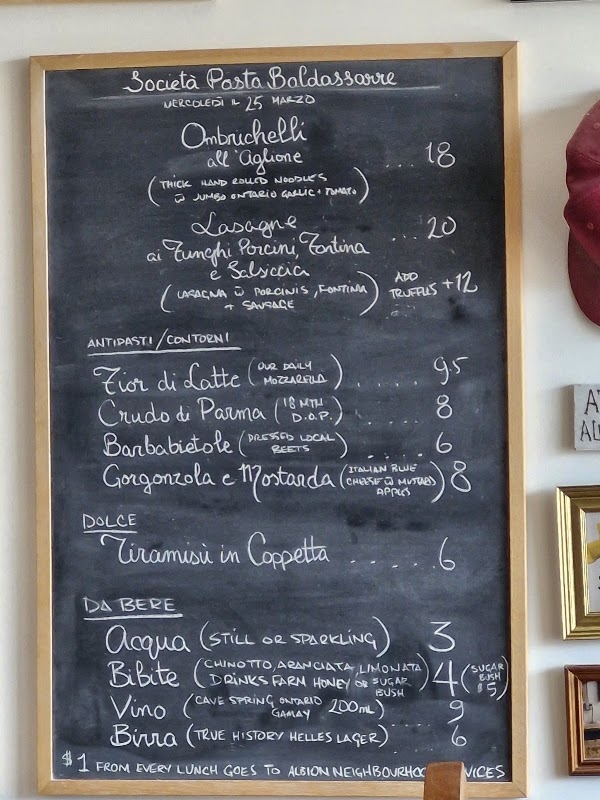 Società Pasta Baldassarre
MERCOLEDÌ IL 25 MARZO
Ombrichelli
all'Aglione .... 18
(THICK HAND ROLLED NOODLES
W JUMBO ONTARIO GARLIC + TOMATO)
Lasagne
ai Funghi Porcini, Fontina ... 20
e Salsiccia
(LASAGNA W PORCINIS, FONTINA
+ SAUSAGE) ADD
TRUFFLES +12
ANTIPASTI/CONTORNI
Fior di Latte (OUR DAILY
MOZZARELLA) ..... 9.5
Crudo di Parma (18 MTH
D.O.P.) ..... 8
Barbabietole (DRESSED LOCAL
BEETS) ..... 6
Gorgonzola e Mostarda (ITALIAN BLUE
CHEESE W MUSTARD
APPLES) 8
DOLCE
Tiramisù in Coppetta .... 6
DA BERE
Acqua (STILL OR SPARKLING) 3
Bibite (CHINOTTO, ARANCIATA, LIMONATA
DRINKS FARM HONEY OR SUGAR
BUSH) 4 (SUGAR
BUSH
$5)
Vino (CAVE SPRING ONTARIO
GAMAY 200mL) .... 9
Birra (TRUE HISTORY HELLES LAGER) .... 6
$1 FROM EVERY LUNCH GOES TO ALBION NEIGHBOURHOO VICES